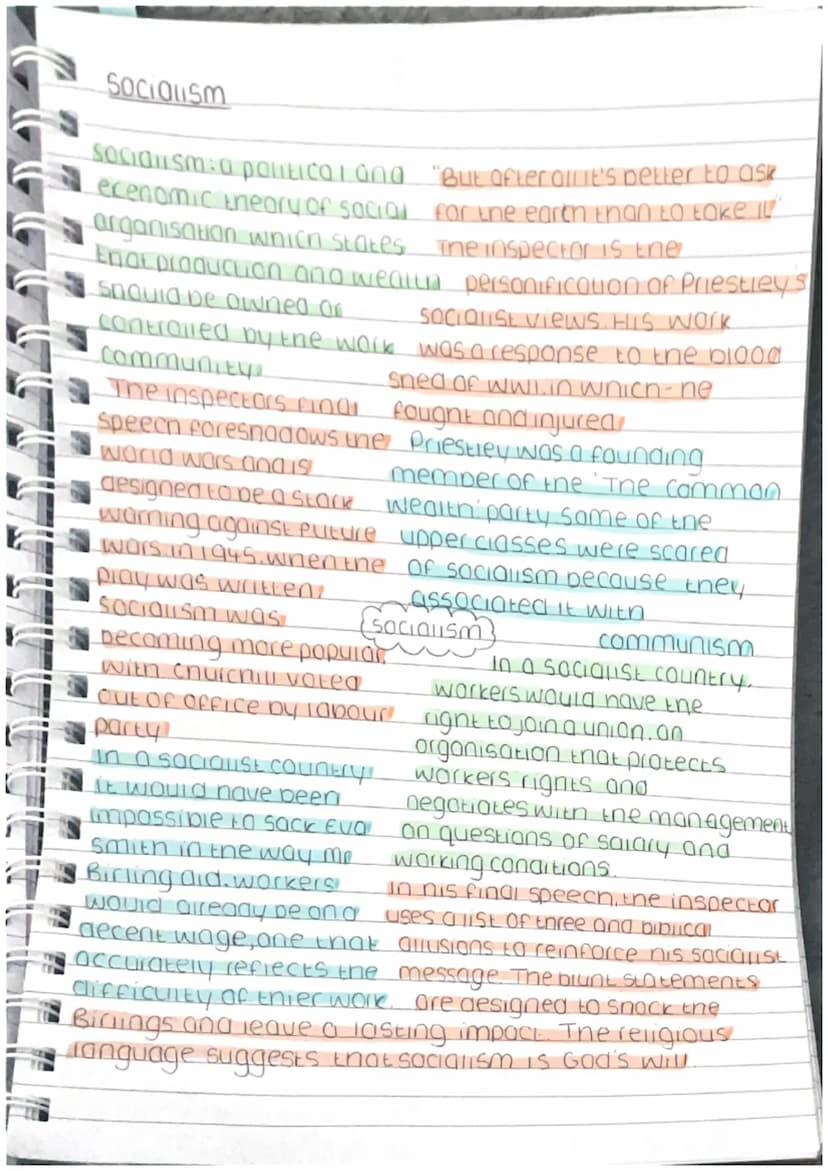 Socialism
Socialism: a political and
economic theory of social
organisation which states
that production and wealth
should be owned or
controlled by the work
community.
The inspectors final
speech foreshadows the
world wars and is
designed to be a stark
warning against future
wars in 1945. when the
play was written,
socialism was
becoming more popular
with churchill voted
out of office by labour
party
In a socialist country
it would have been
impossible to sack Eva
Smith in the way Mr
Birling did. workers
would already be on a
decent wage, one that
accurately reflects the
difficulty of thier work.
"But after all it's better to ask
for the earth than to take it"
The inspector is the
personification of Priestley's
socialist views. His work
was a response to the blood
shed of WWI. in which - he
fought and injured
Priestley was a founding
member of the 'The common
wealth' party some of the
upper classes were scared
of socialism because they
associated it with
communism
socialism
In a socialist country.
workers would have the
right to join a union. an
organisation that protects
workers rights and
negotiates with the management
on questions of salary and
working conditions.
In his final speech, the inspector
uses a list of three and biblical
allusions to reinforce his socialist
message. The blunt statements
are designed to shock the
Birlings and leave a lasting impact. The religious
language suggests that socialism is God's will.